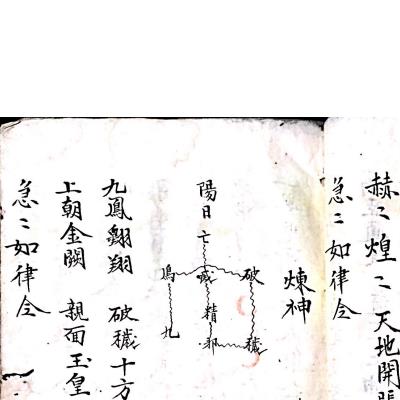 赫〻煌〻天地開張
急〻如律令
煉神
陽日亡
鳥 破
精
九 邪 穢
九鳳翱翔 破穢十方
上朝金闕 親面玉皇
急〻如律令